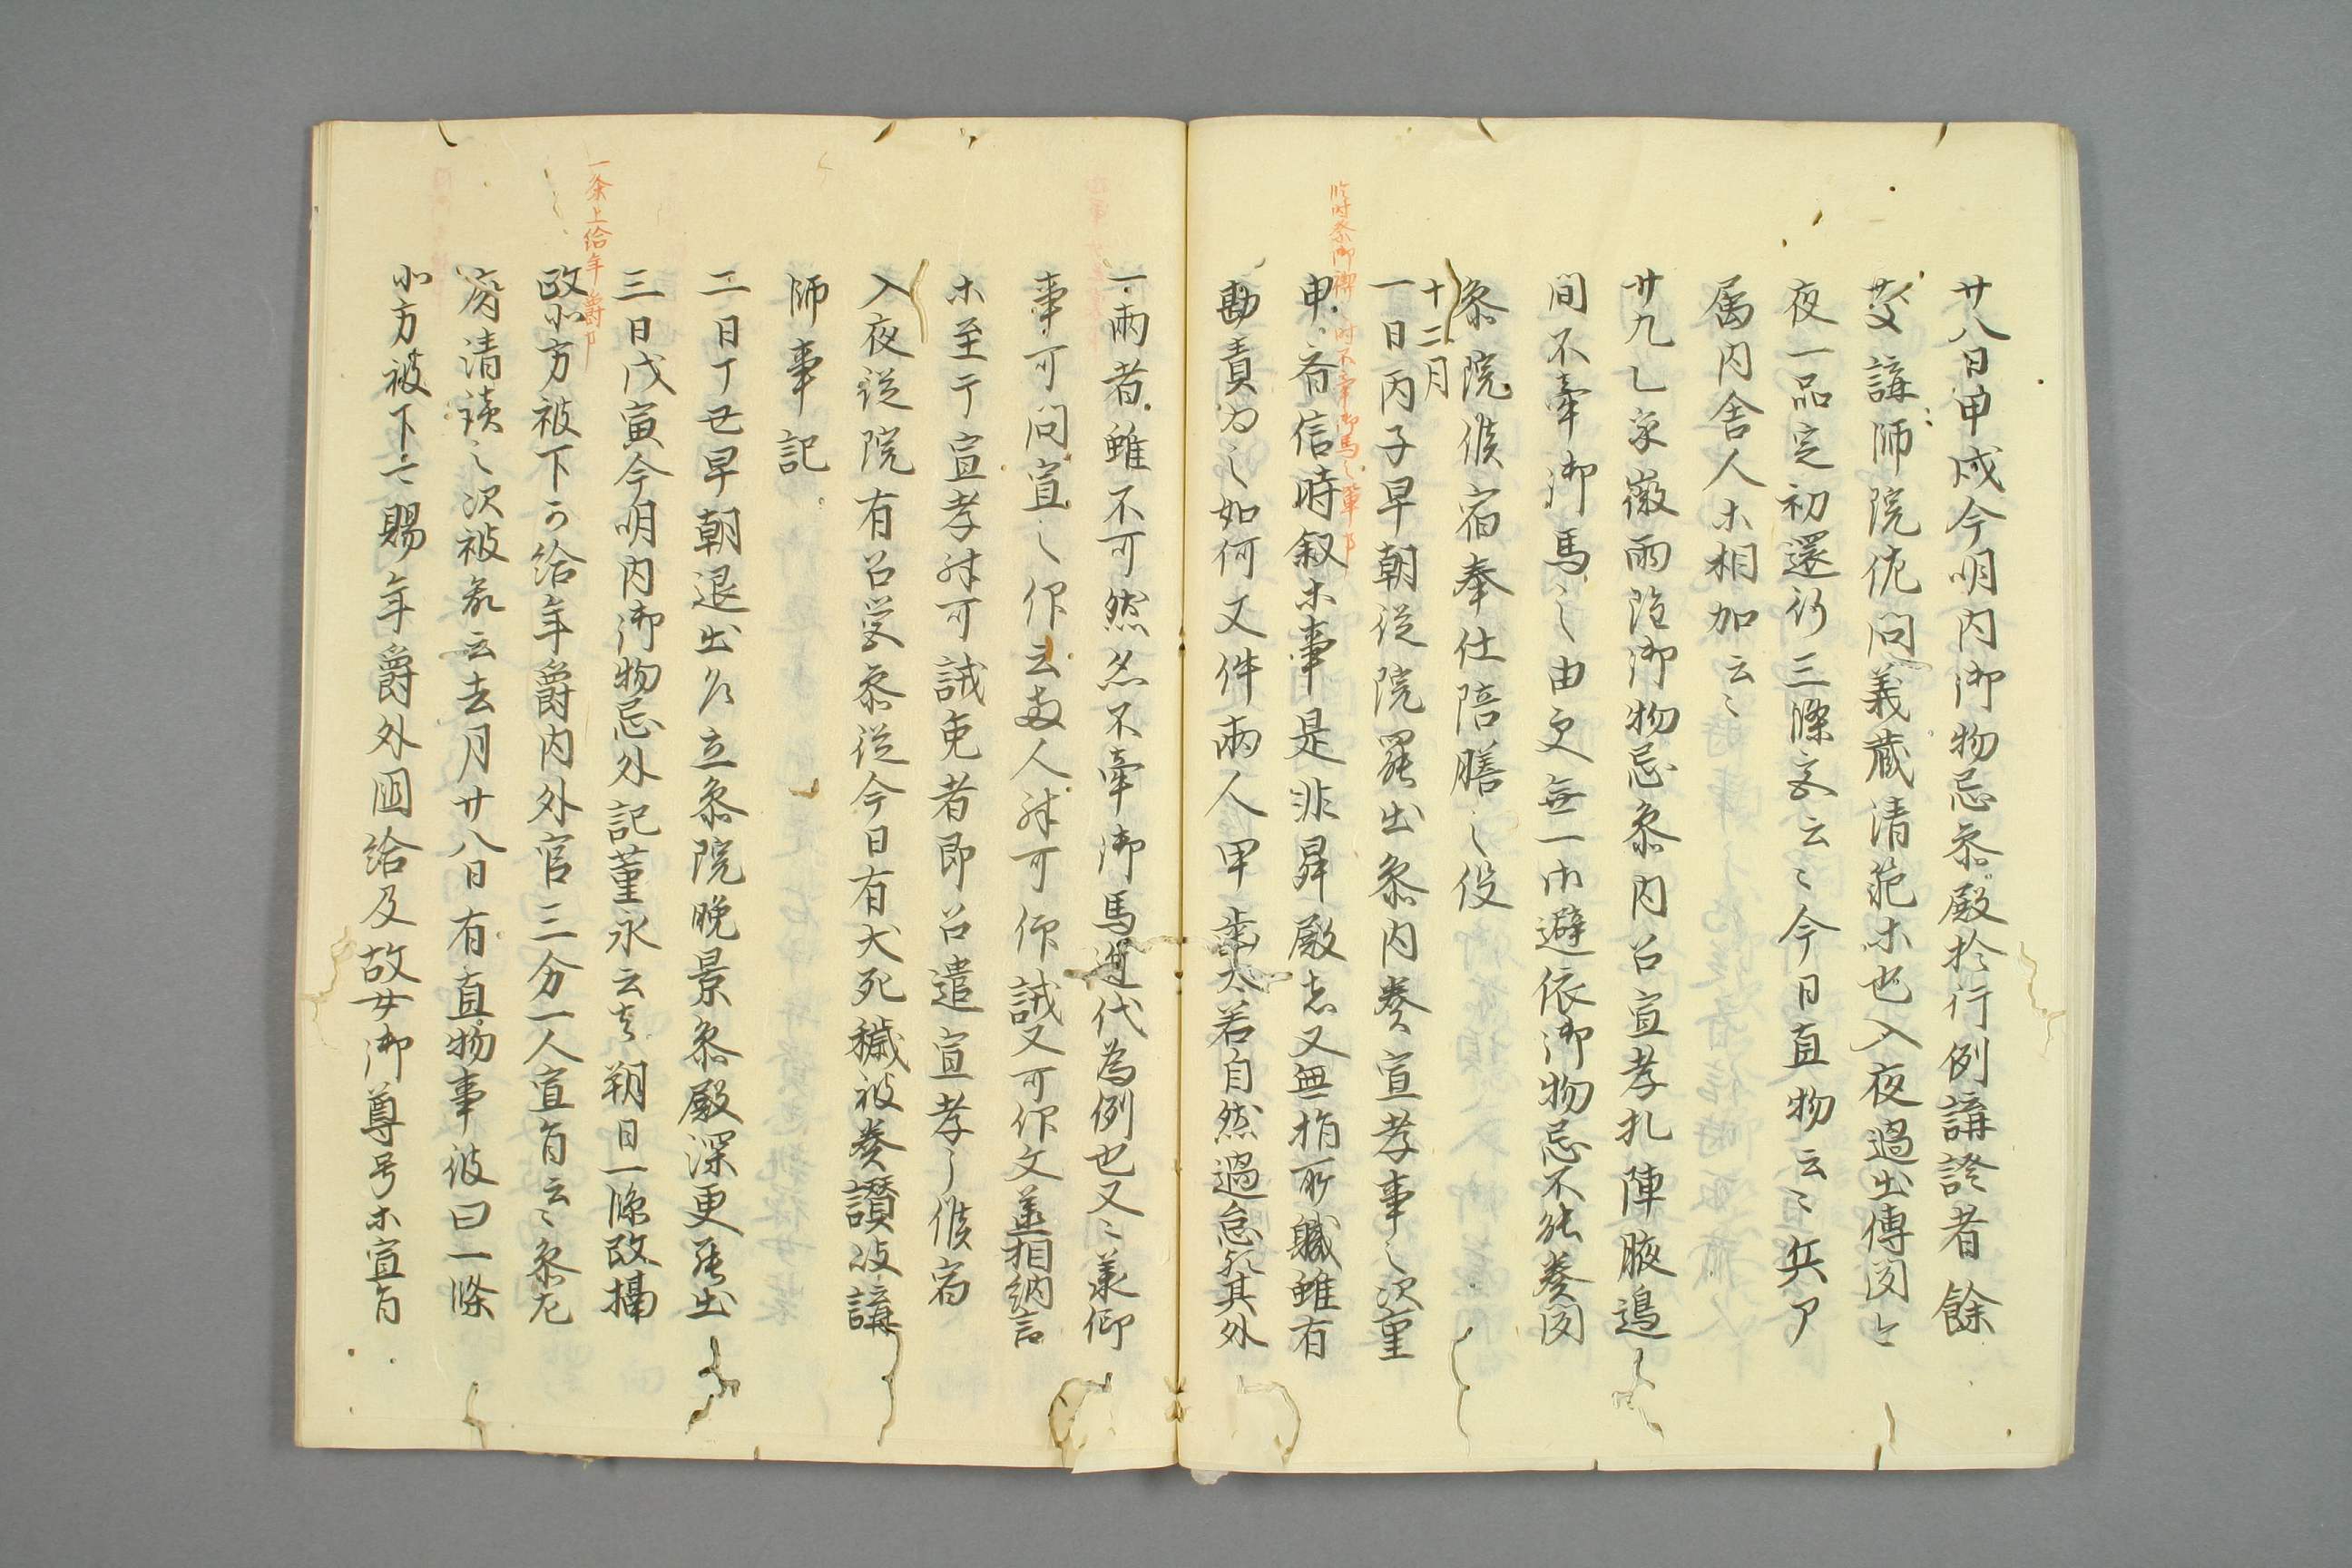 廿八日甲戌今明内御物忌参殿於行例講證者餘
慶講師院侊問義蔵清範木也入夜過出傳聞今
夜一品宮初還行三條宮云々今日直物云々兵ア
属内舎人木相加云々
廿九乙亥微雨陰御物忌参内召宣孝扎陣腋邉
間不牽御馬之由更無一巾避依御物忌不能奏聞
参院候宿奉仕陪膳之役
十二月
臨時祭御禊 時不牽御馬之輩事
一日丙子早朝従院罷出参内奏宣孝事之次重
申斉信時叙木事是非昇殿志又無指所職雖有
勘責為之如何又件兩人甲 若自然過怠歟其外
一兩者雖不可然猶不牽御馬進代為例也又々義仰
事可問宣之仰云両人殊可仰誡又可仰文並相納言
木至于宣孝殊可誡免者即召遣宣孝了候宿
入夜従院有召参従今日有犬死穢被奏讃岐講
師事記
二日丁丑早朝退出乍立参院晩景参殿深更罷出
三日戊寅今明内御物忌外記董永云去朔日一條改摂
一条上給年爵事
政北方被下可給年爵内外官三分一人宣旨云々参左
府清談之次被示云去月廿八日有直物事彼日一條
北方被下云賜年爵外國給及故女御尊号木宣旨